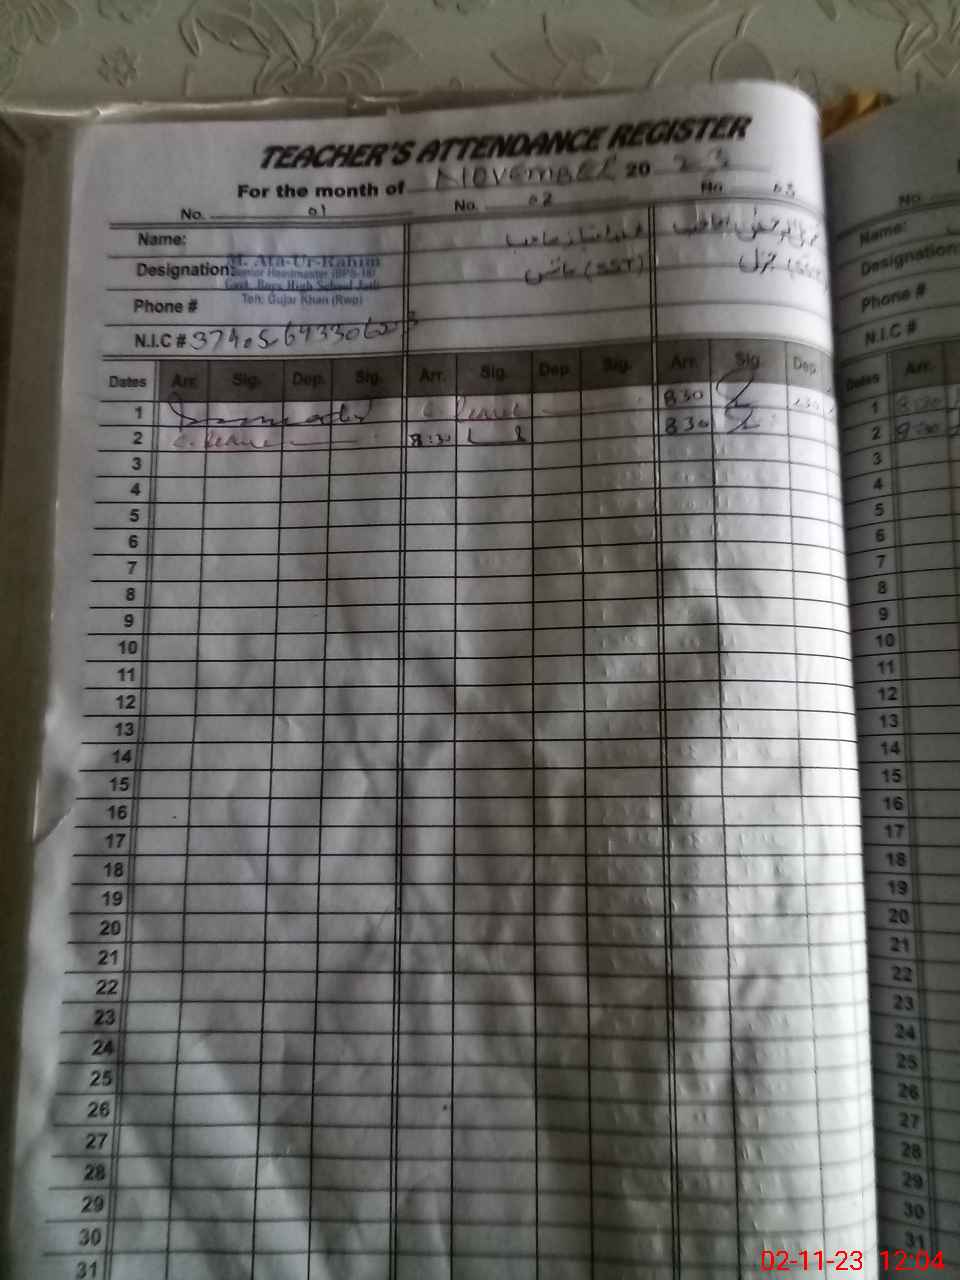 TEACHER'S ATTENDANCE REGISTER
For the month of NOVEMBER 20 23
No. 01 No. 02 No. 03 No.
Name: صاحب صاحب Name:
Designation: M. Ata-Ur-Rahim (SST) (SST) جنرل Designation:
Senior Headmaster (BPS-18)
Govt. Boys High School
Teh: Gujar Khan (Rwp)
Phone # Phone #
N.I.C # N.I.C #
Dates Arr. Sig. Dep. Sig. Arr. Sig. Dep. Sig. Arr. Sig. Dep. Dates Arr.
1 C. Leave 830 1 8:00
2 C. Leave 8:30 830 2
3 3
4 4
5 5
6 6
7 7
8 8
9 9
10 10
11 11
12 12
13 13
14 14
15 15
16 16
17 17
18 18
19 19
20 20
21 21
22 22
23 23
24 24
25 25
26 26
27 27
28 28
29 29
30 30
31 31
02-11-23 12:04